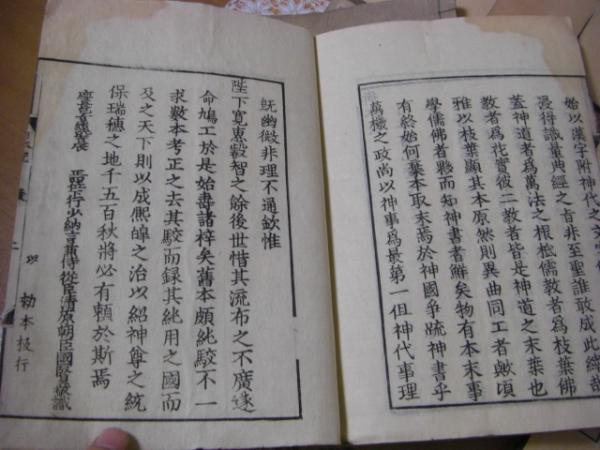 始以漢字附神代之文字傍
浸得識量典經之旨非至聖誰敢成此緯哉
蓋神道者爲萬法之根柢儒教者爲枝葉佛
教者爲花實彼二教者皆是神道之末葉也
雅以枝葉顯其本原然則異曲同工者歟頃
學儒佛者夥而知神書者鮮矣物有本末事
有終始何棄本取末焉於神國爭疏神書乎
萬機之政尚以神事爲最第一但神代事理
既幽微非理不通欽惟
陛下寛惠叡智之餘後世惜其流布之不廣遂
命鳩工於是始壽諸梓矣舊本頗純駁不一
求數本考正之去其駁而録其純用之國而
及之天下則以成熈皞之治以紹神尊之統
保瑞穗之地千五百秋將必有頼於斯焉
慶長 正四位下行少納言兼侍從臣清原朝臣國賢敬識
以 勅本板行